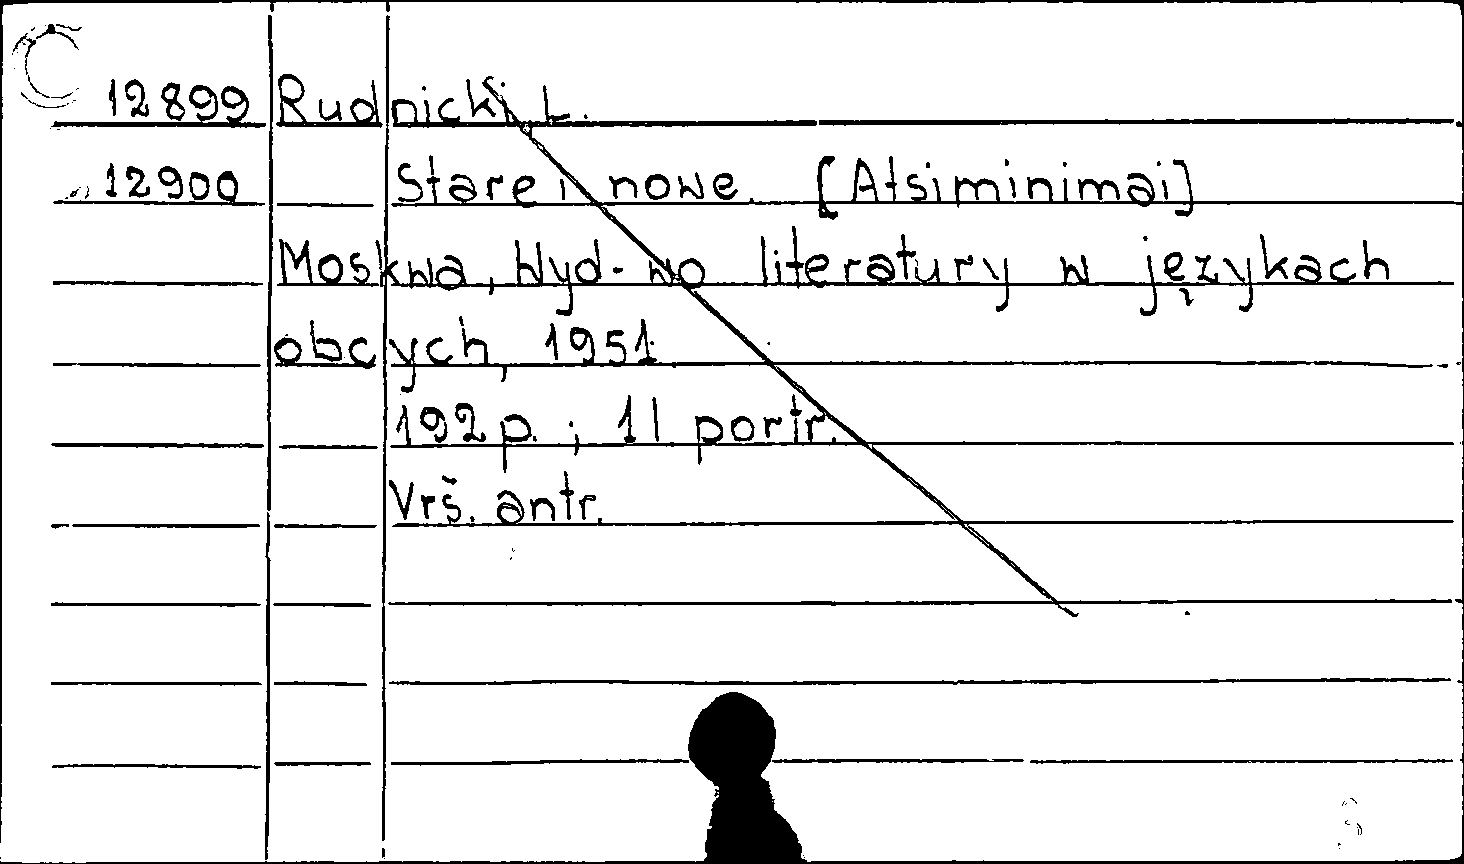 12899 Rudnicki Ł.
12900 Stare i nowe. [Atsiminimai]
Moskwa, Wyd-wo literatury w językach
obcych, 1951
192 p. ; 1 l portr.
Vrš. antr.